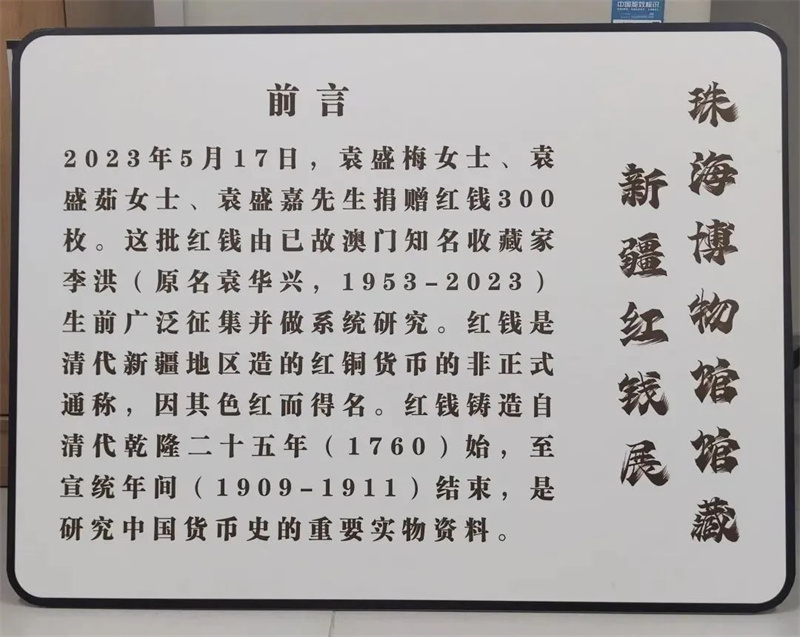 中国能效标识
珠海博物馆馆藏
新疆红钱展
前言
2023年5月17日，袁盛梅女士、袁
盛茹女士、袁盛嘉先生捐赠红钱300
枚。这批红钱由已故澳门知名收藏家
李洪（原名袁华兴，1953-2023）
生前广泛征集并做系统研究。红钱是
清代新疆地区造的红铜货币的非正式
通称，因其色红而得名。红钱铸造自
清代乾隆二十五年（1760）始，至
宣统年间（1909-1911）结束，是
研究中国货币史的重要实物资料。